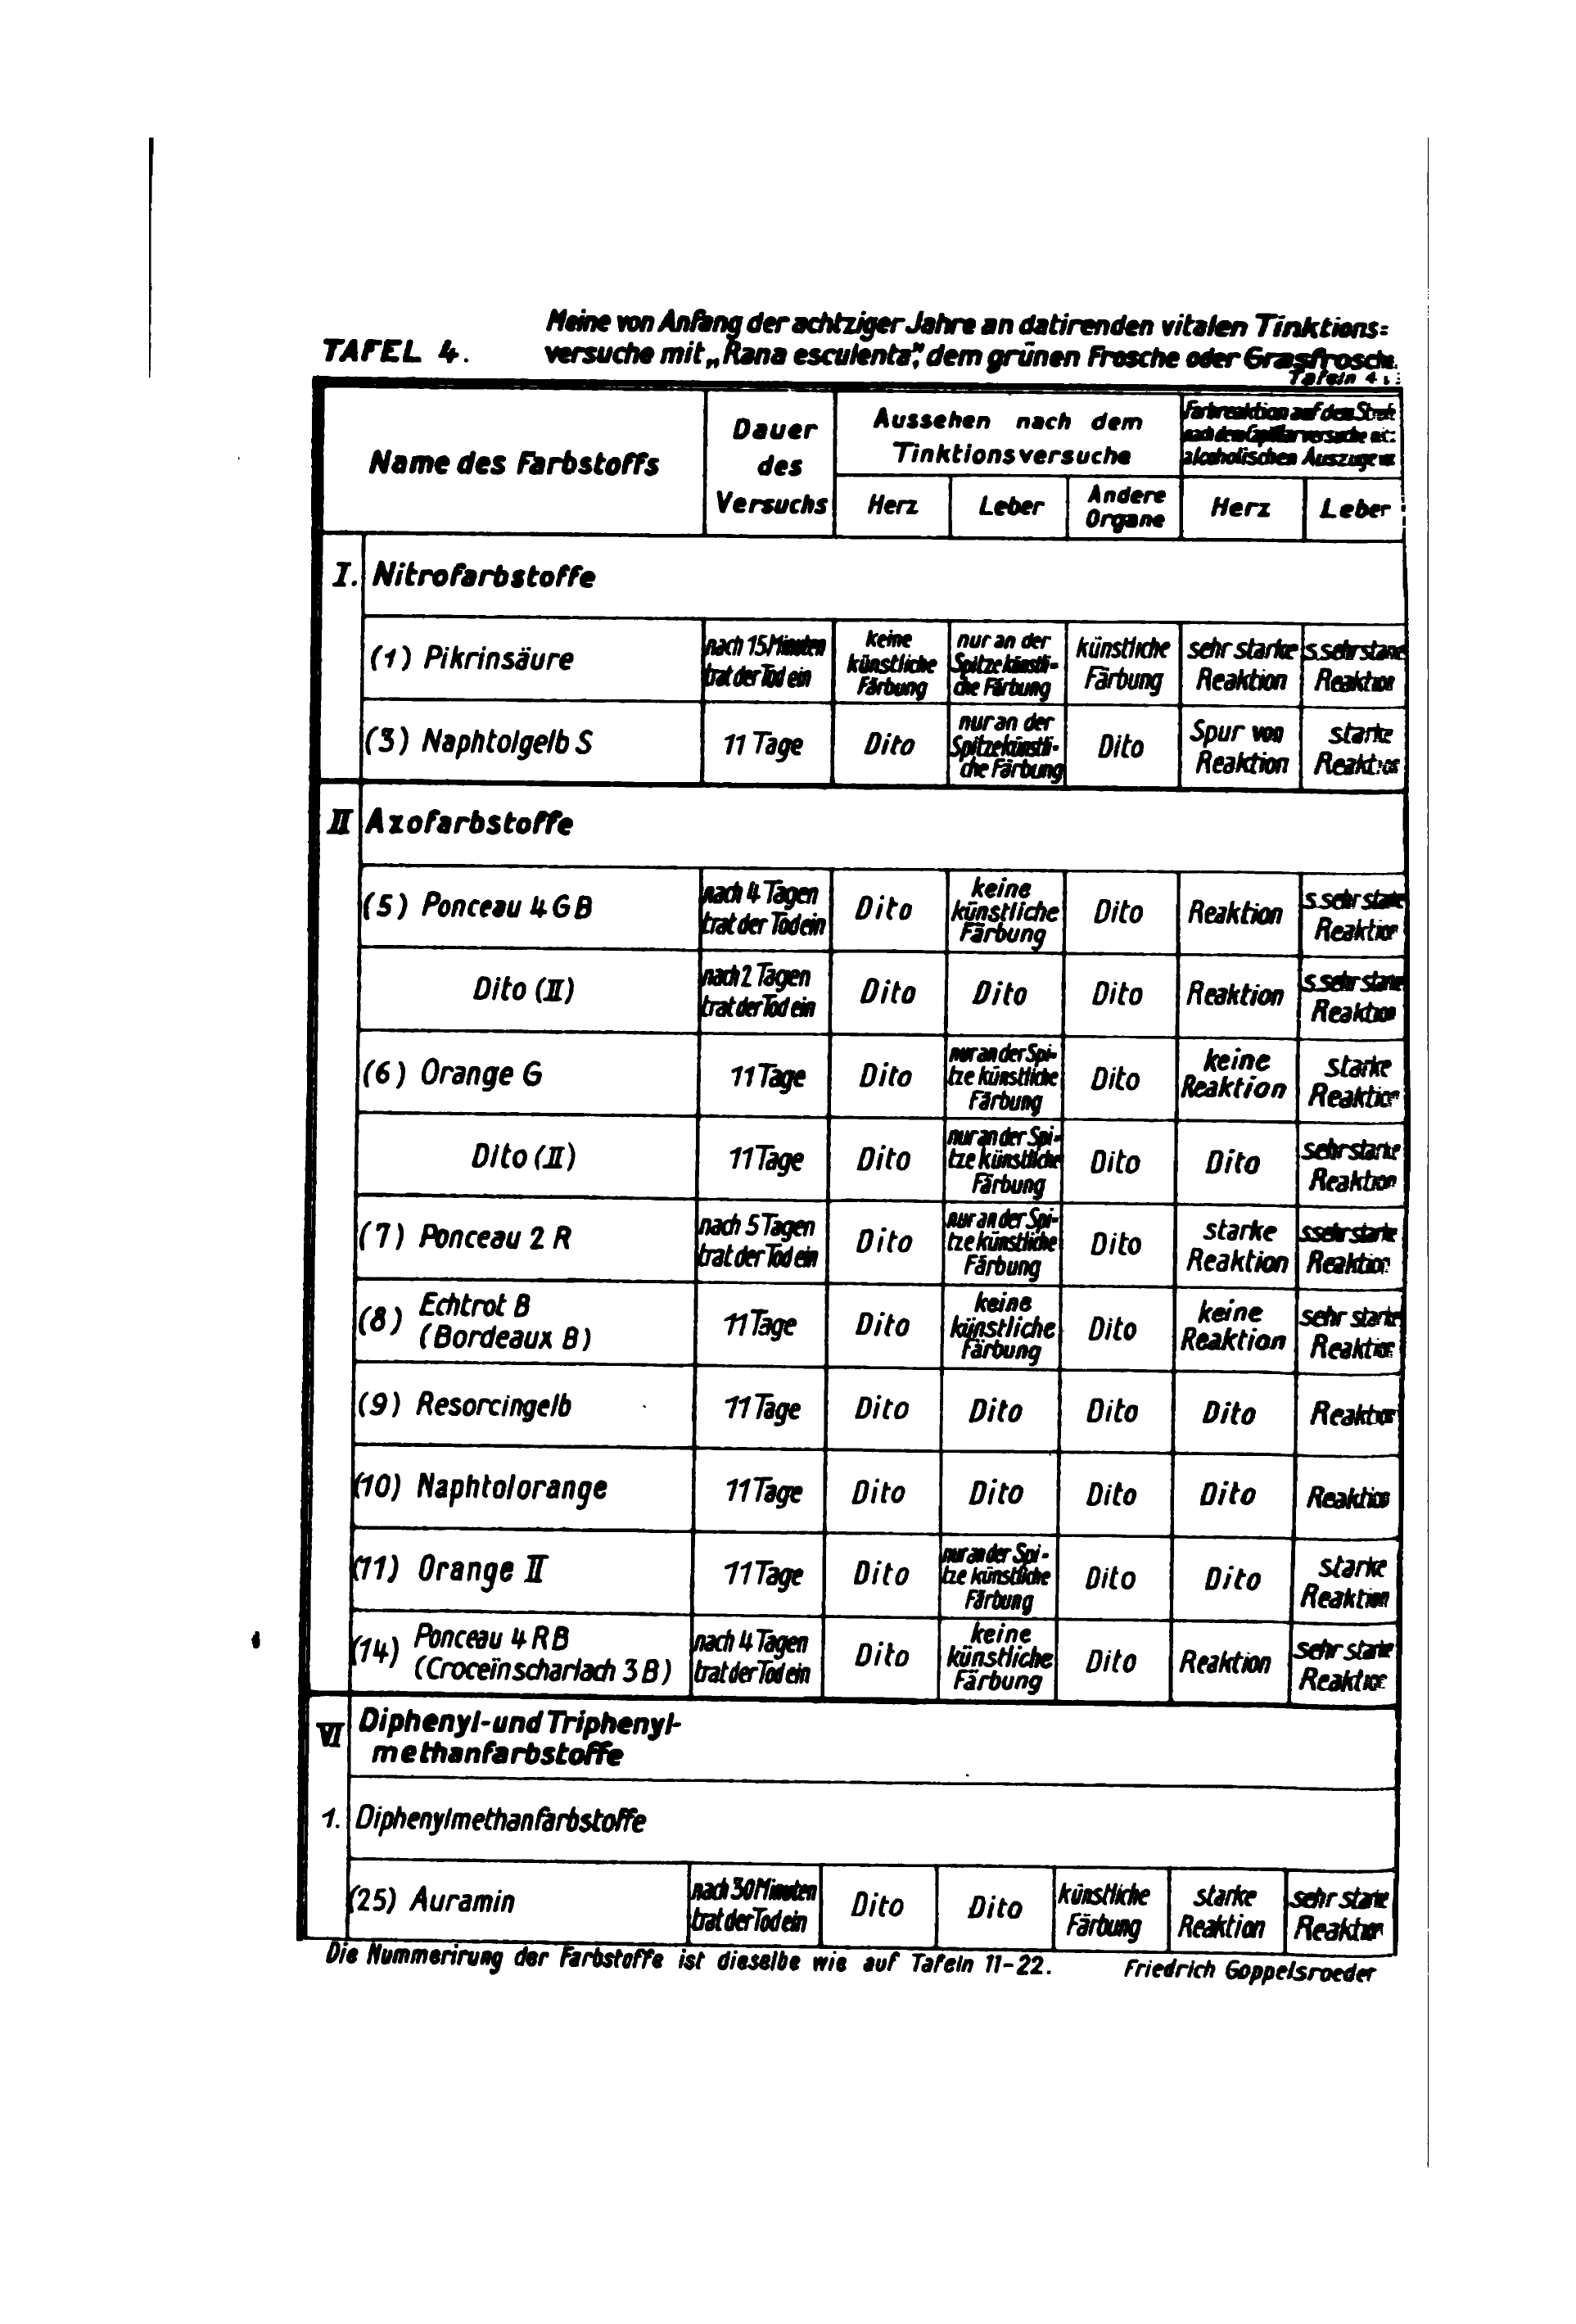 TAFEL 4.
Meine von Anfang der achtziger Jahre an datirenden vitalen Tinktions=
versuche mit „Rana esculenta", dem grünen Frosche oder Grasfrosche.
Tafeln 4
Name des Farbstoffs
Dauer
des
Versuchs
Aussehen nach dem
Tinktionsversuche
Herz
Leber
Andere
Organe
Farbreaktion auf dem
nach dem Capillarversuche
alcoholischen Auszuge
Herz
Leber
I. Nitrofarbstoffe
(1) Pikrinsäure
nach 15 Minuten
trat der Tod ein
keine
künstliche
Färbung
nur an der
Spitze künstli-
che Färbung
künstliche
Färbung
sehr starke
Reaktion
s. sehr starke
Reaktion
(3) Naphtolgelb S
11 Tage
Dito
nur an der
Spitze künstli-
che Färbung
Dito
Spur von
Reaktion
starke
Reaktion
II Azofarbstoffe
(5) Ponceau 4GB
nach 4 Tagen
trat der Tod ein
Dito
keine
künstliche
Färbung
Dito
Reaktion
s. sehr starke
Reaktion
Dito (II)
nach 2 Tagen
trat der Tod ein
Dito
Dito
Dito
Reaktion
s. sehr starke
Reaktion
(6) Orange G
11 Tage
Dito
nur an der Spi-
tze künstliche
Färbung
Dito
keine
Reaktion
starke
Reaktion
Dito (II)
11 Tage
Dito
nur an der Spi-
tze künstliche
Färbung
Dito
Dito
sehr starke
Reaktion
(7) Ponceau 2 R
nach 5 Tagen
trat der Tod ein
Dito
nur an der Spi-
tze künstliche
Färbung
Dito
starke
Reaktion
s. sehr starke
Reaktion
(8) Echtrot B
(Bordeaux B)
11 Tage
Dito
keine
künstliche
Färbung
Dito
keine
Reaktion
sehr starke
Reaktion
(9) Resorcingelb
11 Tage
Dito
Dito
Dito
Dito
Reaktion
(10) Naphtolorange
11 Tage
Dito
Dito
Dito
Dito
Reaktion
(11) Orange II
11 Tage
Dito
nur an der Spi-
tze künstliche
Färbung
Dito
Dito
starke
Reaktion
(14) Ponceau 4RB
(Croceïnscharlach 3B)
nach 4 Tagen
trat der Tod ein
Dito
keine
künstliche
Färbung
Dito
Reaktion
sehr starke
Reaktion
VI Diphenyl- und Triphenyl-
methanfarbstoffe
1. Diphenylmethanfarbstoffe
(25) Auramin
nach 30 Minuten
trat der Tod ein
Dito
Dito
künstliche
Färbung
starke
Reaktion
sehr starke
Reaktion
Die Nummerirung der Farbstoffe ist dieselbe wie auf Tafeln 11-22.
Friedrich Goppelsroeder